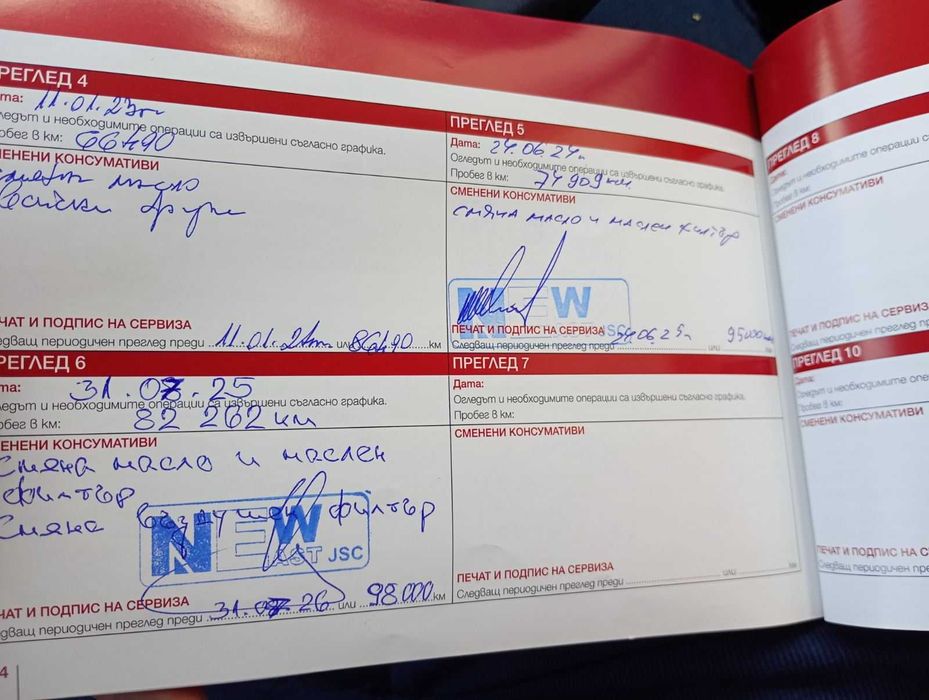 РЕГЛЕД 4
та: 11.01.23г
гледът и необходимите операции са извършени съгласно графика.
обег в км: 66490
МЕНЕНИ КОНСУМАТИВИ
масло
ЧАТ И ПОДПИС НА СЕРВИЗА
едващ периодичен преглед преди 11.01.24г или 86490 км
ПРЕГЛЕД 5
Дата: 24.06.24г.
Огледът и необходимите операции са извършени съгласно графика.
Пробег в км: 74909 км
СМЕНЕНИ КОНСУМАТИВИ
смяна масло и маслен филтър
NEW
JSC
ПЕЧАТ И ПОДПИС НА СЕРВИЗА
Следващ периодичен преглед преди 24.06.25г. или 95000 км
РЕГЛЕД 6
та: 31.07.25
ледът и необходимите операции са извършени съгласно графика.
обег в км: 82 262 км
ЕНЕНИ КОНСУМАТИВИ
Смяна масло и маслен
филтър
Смяна въздушен филтър
NEW
JSC
ЧАТ И ПОДПИС НА СЕРВИЗА
едващ периодичен преглед преди 31.07.26 или 98000 км
ПРЕГЛЕД 7
Дата:
Огледът и необходимите операции са извършени съгласно графика.
Пробег в км:
СМЕНЕНИ КОНСУМАТИВИ
ПЕЧАТ И ПОДПИС НА СЕРВИЗА
Следващ периодичен преглед преди или км
ПРЕГЛЕД 8
Дата:
Огледът и необходимите операции с
Пробег в км:
СМЕНЕНИ КОНСУМАТИВИ
ПЕЧАТ И ПОДПИС НА СЕРВИЗА
Следващ периодичен преглед пр
ПРЕГЛЕД 10
Дата:
Огледът и необходимите операции
Пробег в км:
СМЕНЕНИ КОНСУМАТИВИ
ПЕЧАТ И ПОДПИС НА С
Следващ периодичен пре
4